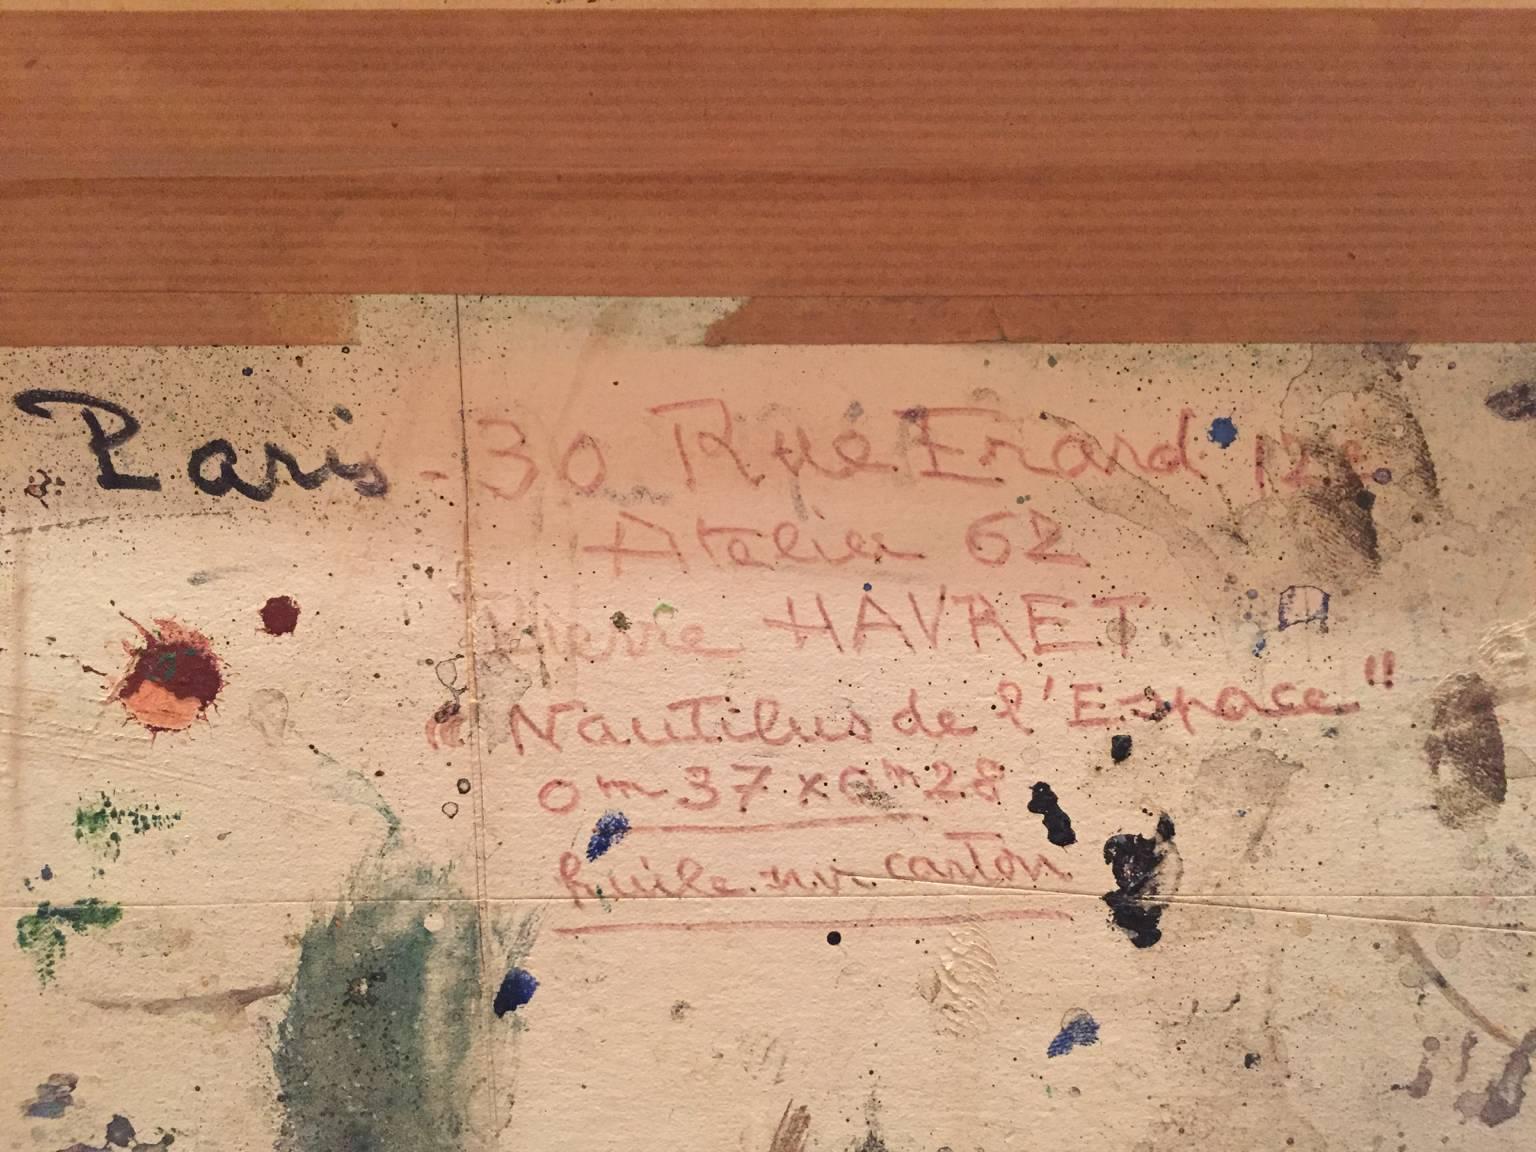 Paris - 30 Rue Erard 12e
Atelier 62
Pierre HAVRET
" Nautilus de l'Espace "
0m 37 x 0m 28
huile sur carton